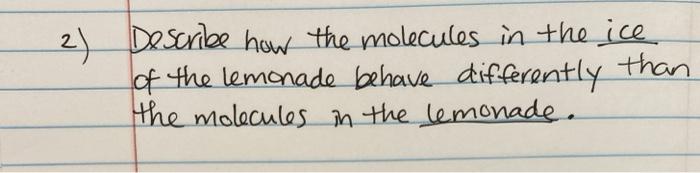 2) Describe how the molecules in the ice
of the lemonade behave differently than
the molecules in the lemonade.